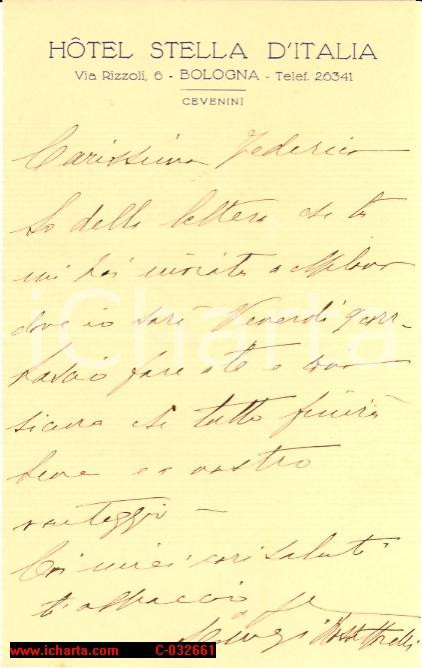 HÔTEL STELLA D'ITALIA
Via Rizzoli, 6 - BOLOGNA - Telef. 26341
CEVENINI
Carissimo Federico
So della lettera che tu
mi hai inviato a Milano
dove io sarò Venerdì
lascio fare a te e
sicuro che tutto finirà
bene e a nostro
vantaggio —
Coi miei cari saluti
t'abbraccio
Luigi
iCharta
www.icharta.com C-032661